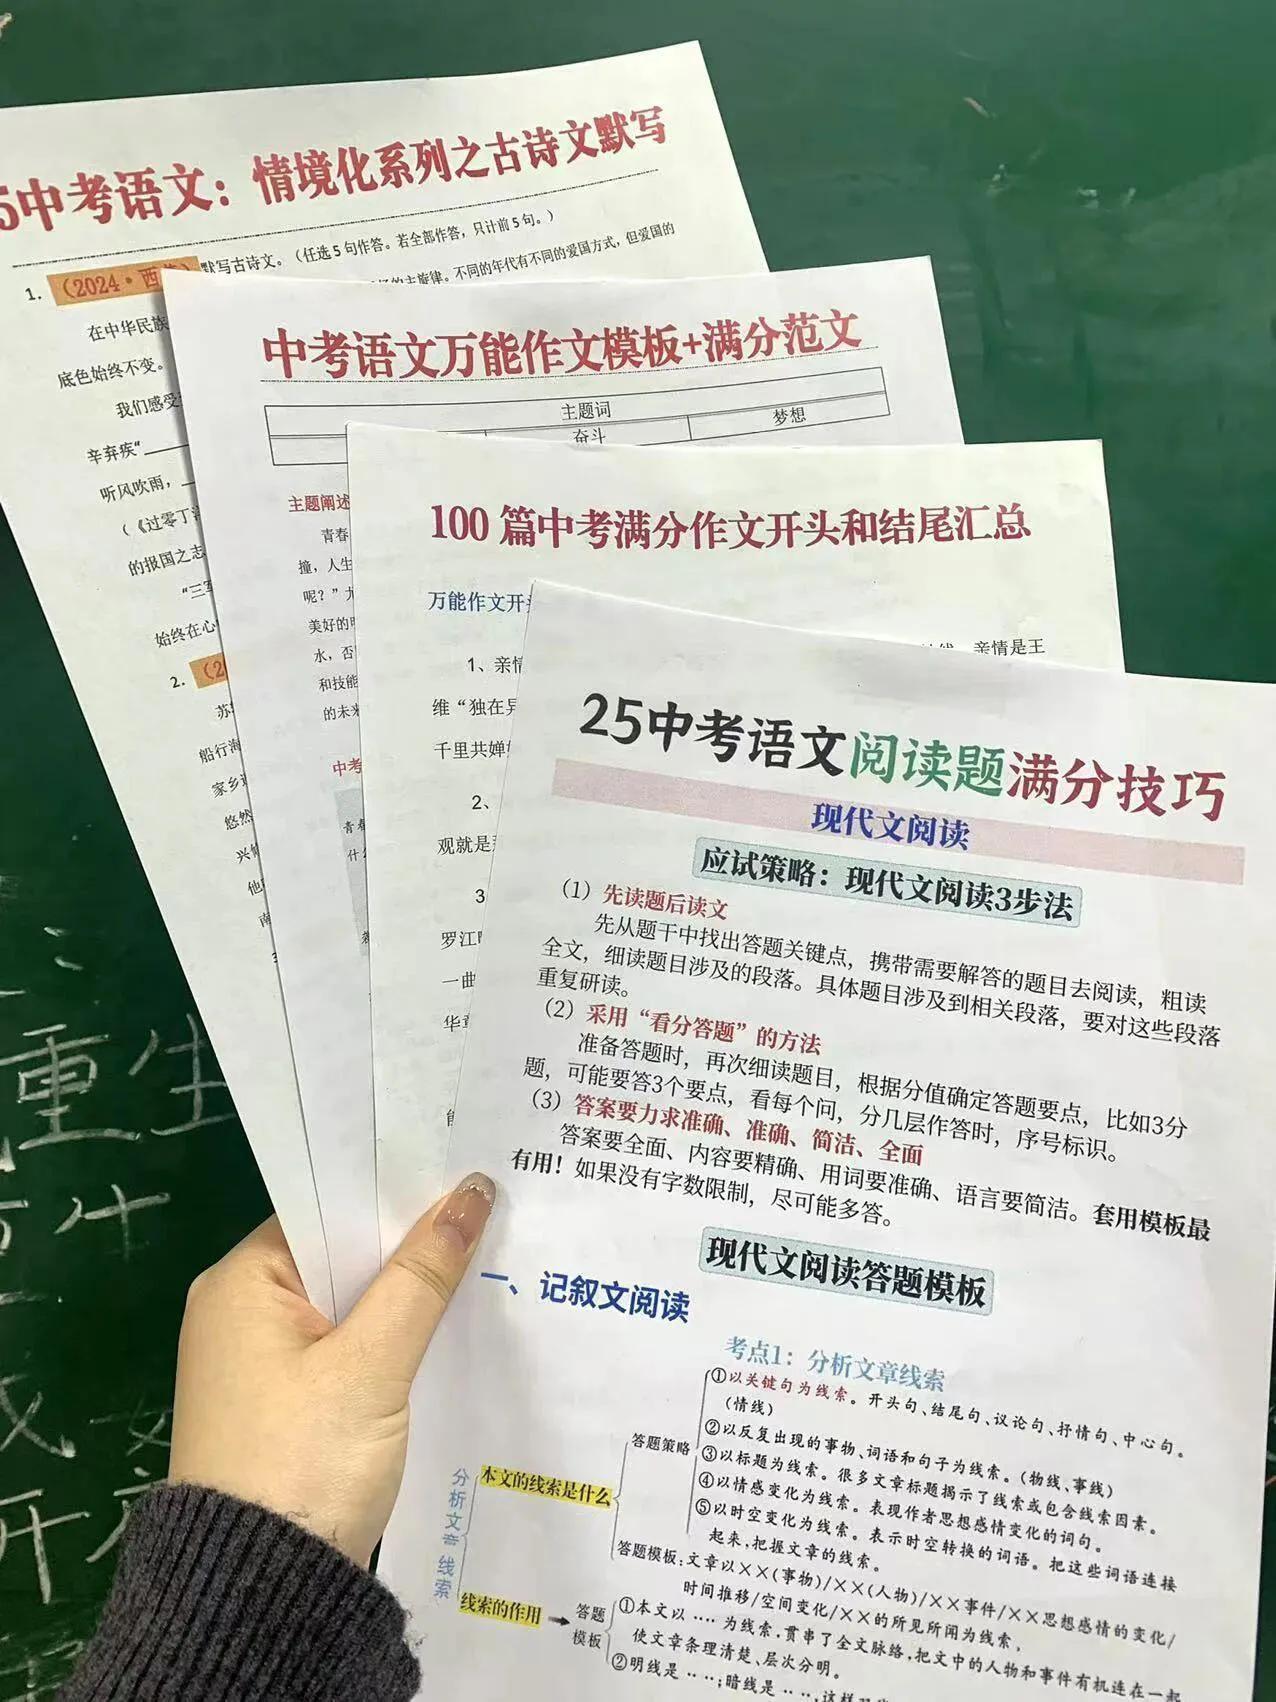 5中考语文：情境化系列之古诗文默写
1.（2024·西
默写古诗文。（任选5句作答。若全部作答，只计前5句。）
在中华民族
的主旋律。不同的年代有不同的爱国方式，但爱国的
底色始终不变。
我们感受
辛弃疾“
听风吹雨，
（《过零丁
的报国之志
“三军
始终在心
2.（2
苏
船行海
家乡
悠然
兴
他
南
中考语文万能作文模板+满分范文
主题词
奋斗
梦想
主题阐述
青春
撞，人生
呢？”尤
美好的
水，否
和技能
的未来
中考
青春
什么
100篇中考满分作文开头和结尾汇总
万能作文开
1、亲情
亲情是王
维“独在异
千里共婵
2、
观就是
3
罗江
一曲
华章
25中考语文阅读题满分技巧
现代文阅读
应试策略：现代文阅读3步法
（1）先读题后读文
先从题干中找出答题关键点，携带需要解答的题目去阅读，粗读
全文，细读题目涉及的段落。具体题目涉及到相关段落，要对这些段落
重复研读。
（2）采用“看分答题”的方法
准备答题时，再次细读题目，根据分值确定答题要点，比如3分
题，可能要答3个要点，看每个问，分几层作答时，序号标识。
（3）答案要力求准确、准确、简洁、全面
答案要全面、内容要精确、用词要准确、语言要简洁。套用模板最
有用！如果没有字数限制，尽可能多答。
现代文阅读答题模板
一、记叙文阅读
考点1：分析文章线索
分析文章线索
本文的线索是什么
答题策略
①以关键句为线索。开头句、结尾句、议论句、抒情句、中心句。
（情线）
②以反复出现的事物、词语和句子为线索。（物线、事线）
③以标题为线索。很多文章标题揭示了线索或包含线索因素。
④以情感变化为线索。表现作者思想感情变化的词句。
⑤以时空变化为线索。表示时空转换的词语。把这些词语连接
起来，把握文章的线索。
答题模板：文章以××(事物)/××(人物)/××事件/××思想感情的变化/
时间推移/空间变化/××的所见所闻为线索，
线索的作用
答题
模板
①本文以····为线索，贯串了全文脉络，把文中的人物和事件有机连在一起
使文章条理清楚、层次分明。
②明线是····；暗线是····，这样
重生